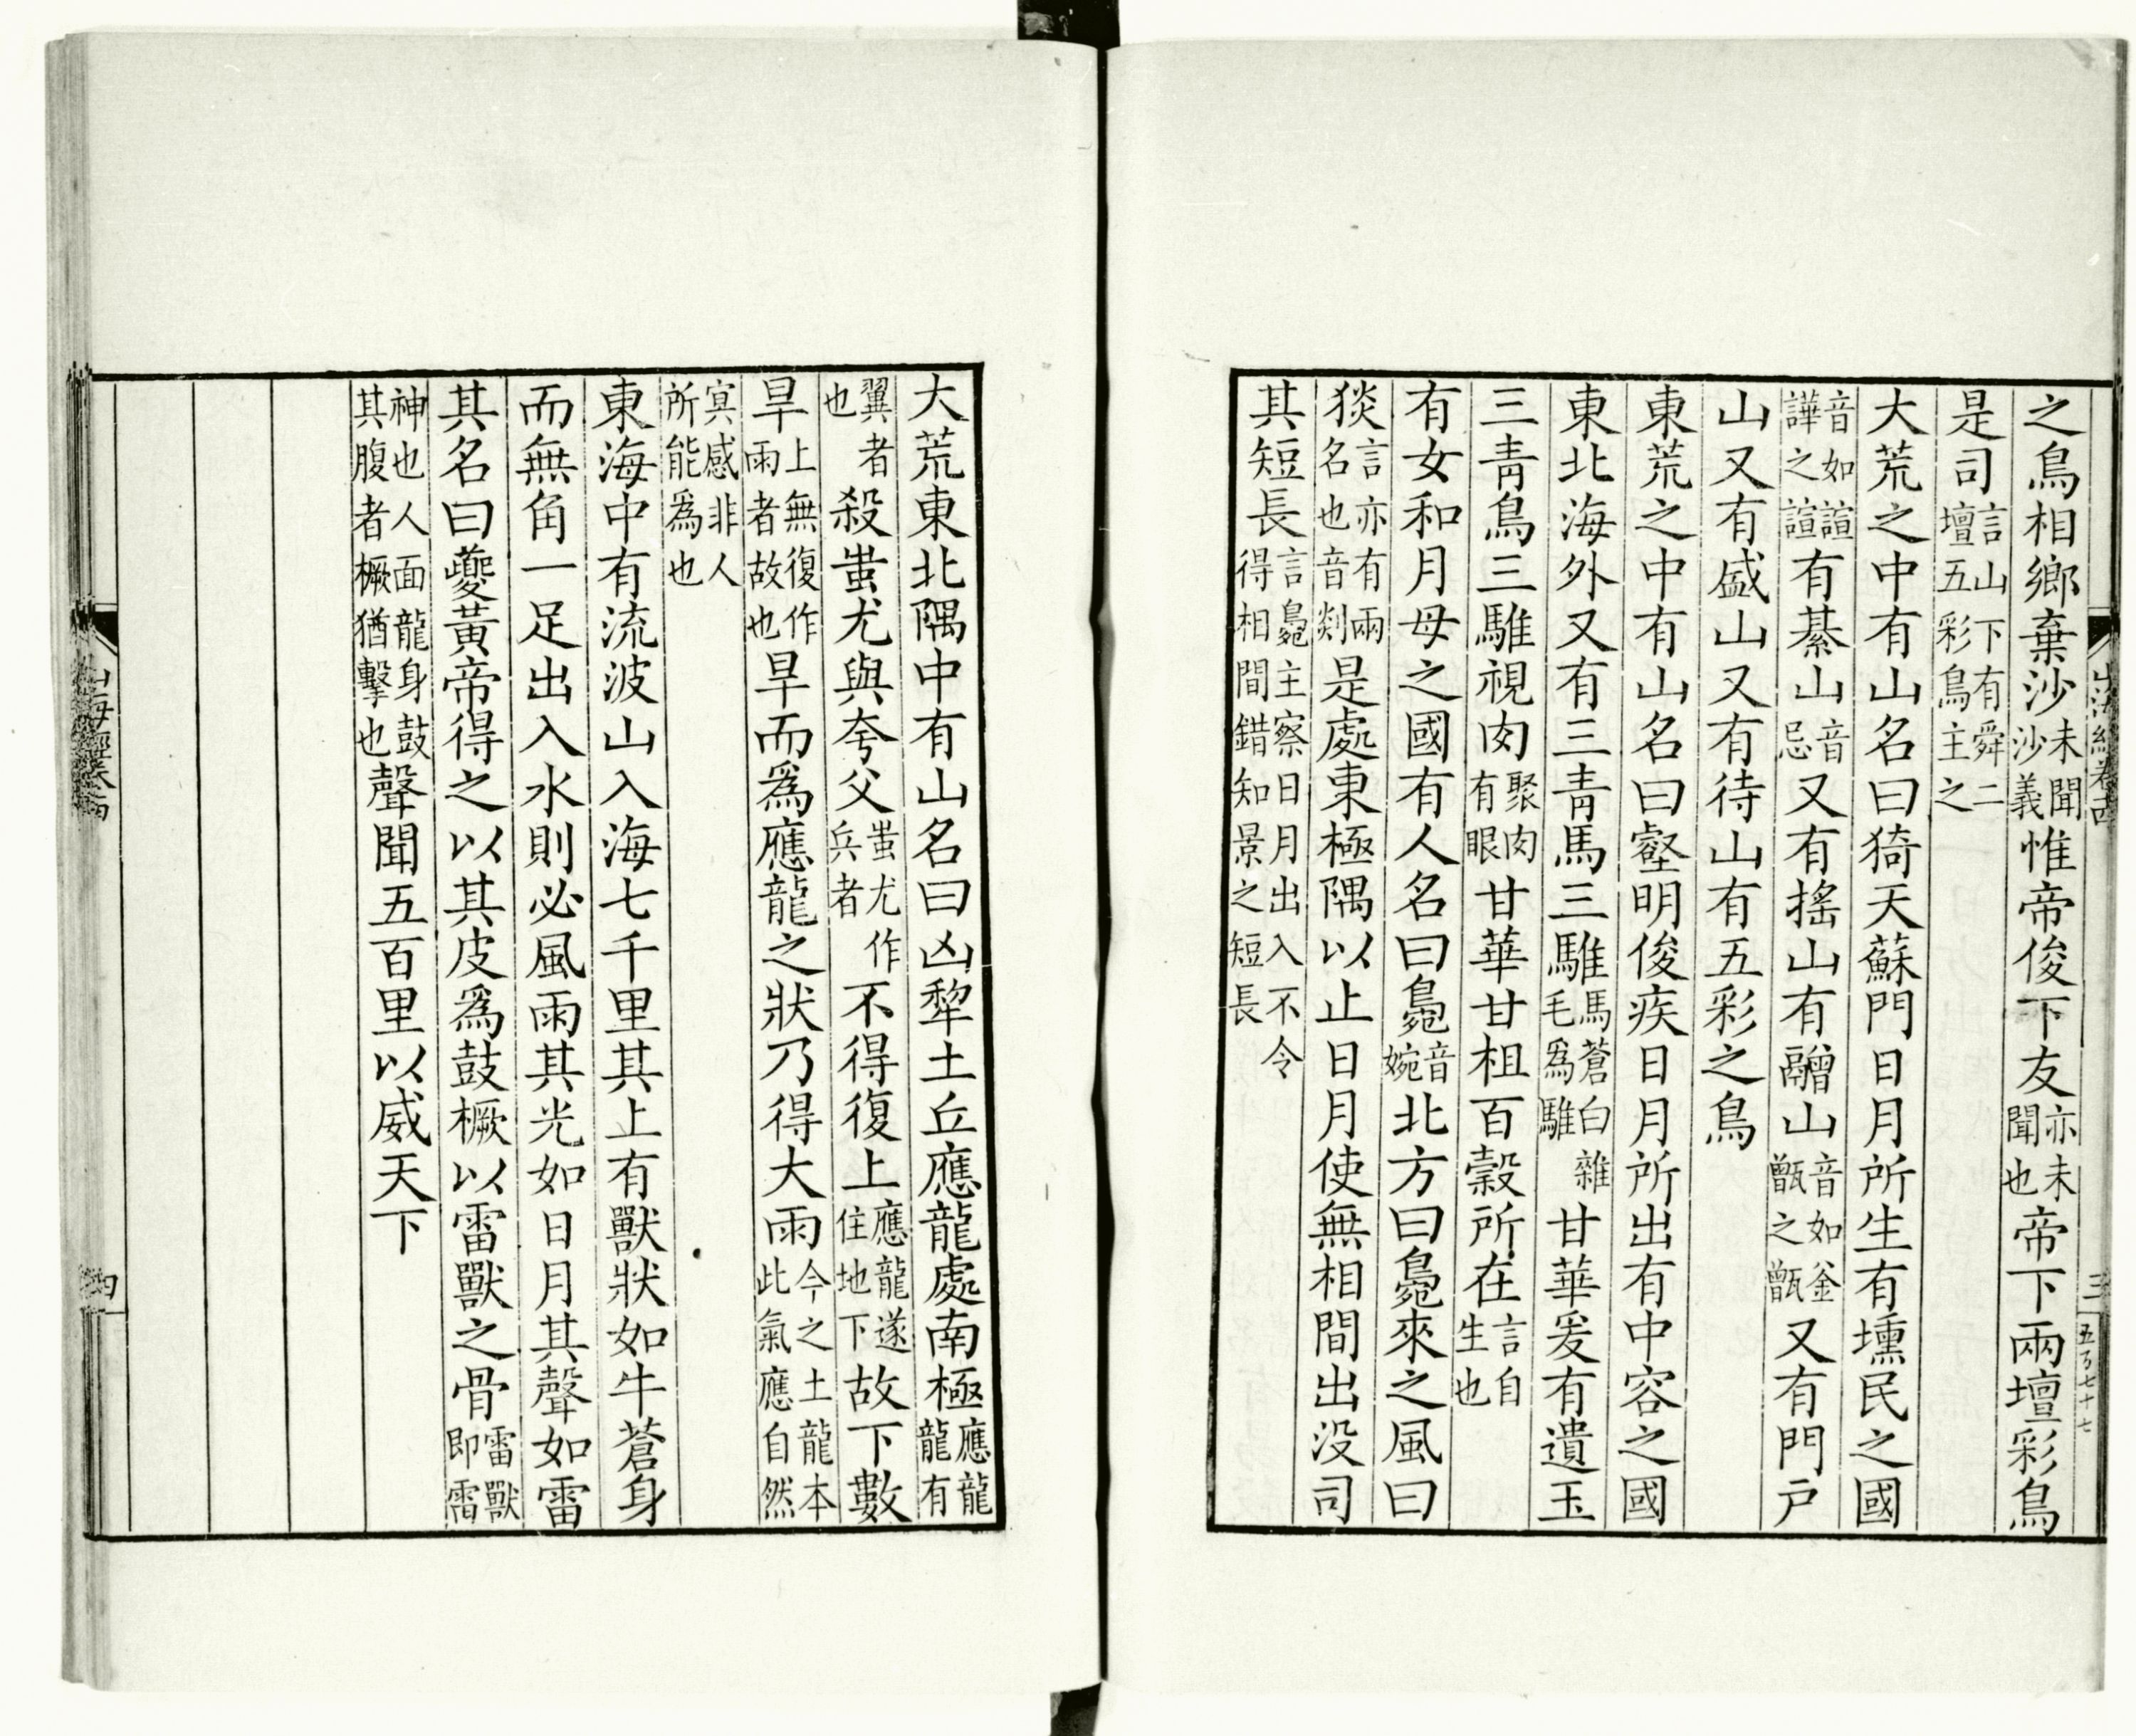 之鳥相鄉棄沙未聞沙義惟帝俊下友亦未聞也帝下兩壇彩鳥
是司言山下有舜二壇五彩鳥主之
大荒之中有山名曰猗天蘇門日月所生有壎民之國
音如諠譁之諠有綦山音忌又有搖山有䰝山音如釜甑之甑又有門戶
山又有盛山又有待山有五彩之鳥
東荒之中有山名曰壑明俊疾日月所出有中容之國
東北海外又有三青馬三騅馬蒼白雜毛爲騅甘華爰有遺玉
三青鳥三騅視肉聚肉有眼甘華甘柤百穀所在言自生也
有女和月母之國有人名曰鵷音婉北方曰鵷來之風曰
𤟇言亦有兩名也音剡是處東極隅以止日月使無相間出沒司
其短長言鵷主察日月出入不令得相間錯知景之短長
山海經卷十四
三
五百七十七
大荒東北隅中有山名曰凶犂土丘應龍處南極應龍龍有
翼者也殺蚩尤與夸父蚩尤作兵者不得復上應龍遂住地下故下數
旱上無復作雨者故也旱而爲應龍之狀乃得大雨今之土龍本此氣應自然
冥感非人所能爲也
東海中有流波山入海七千里其上有獸狀如牛蒼身
而無角一足出入水則必風雨其光如日月其聲如雷
其名曰夔黃帝得之以其皮爲鼓橛以雷獸之骨雷獸即雷
神也人面龍身鼓其腹者橛猶擊也聲聞五百里以威天下
山海經卷十四
四